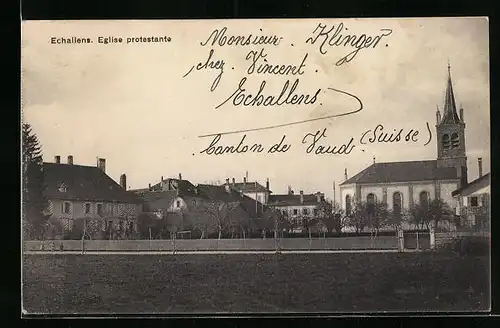 Echallens. Eglise protestante
Monsieur. Klinger.
chez. Vincent.
Echallens.
Canton de Vaud (Suisse)